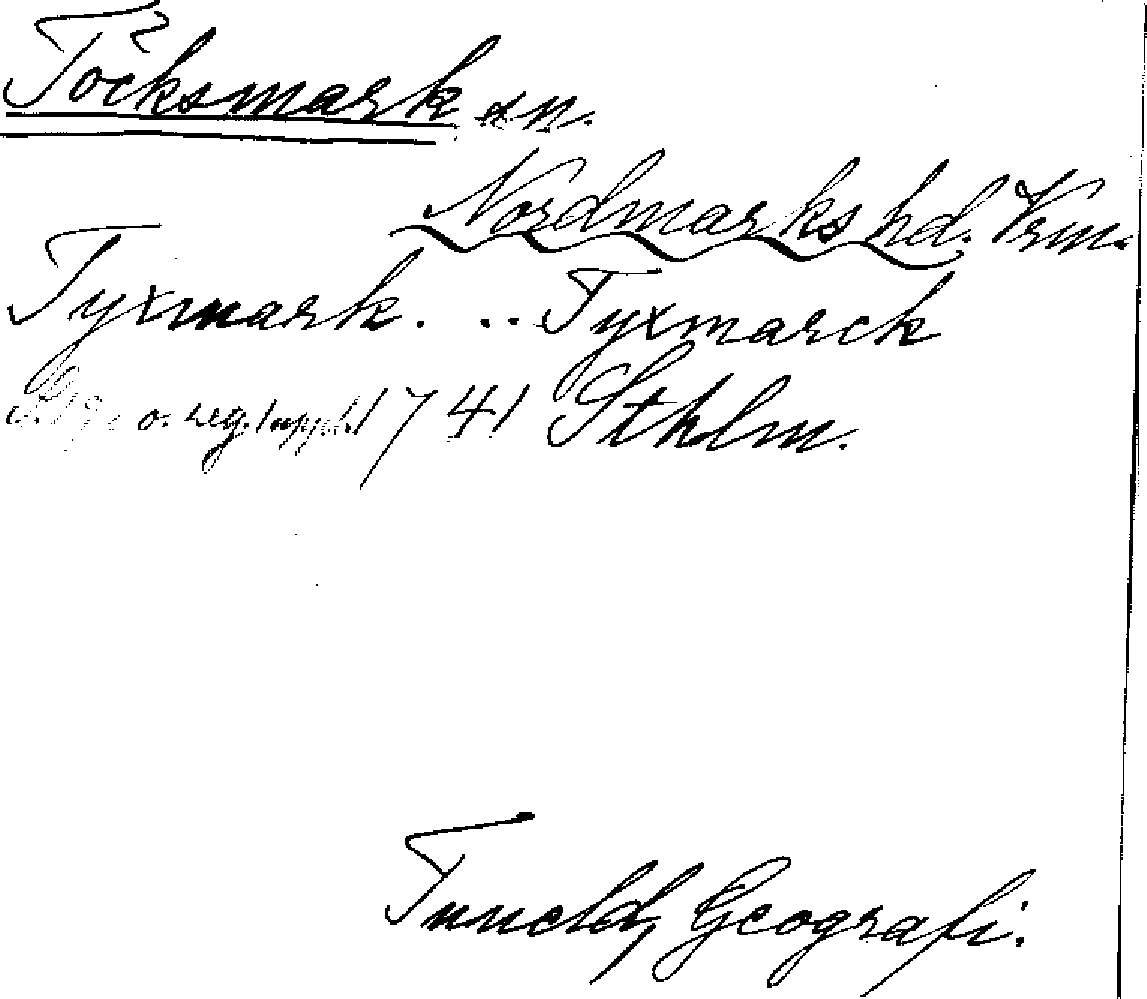 Töcksmark sn.
Nordmarks hd. Vrm.
Tyxmark. .. Tyxmarck
o. reg. 1 uppl. 1741 Sthlm.
Tuneld, Geografi.